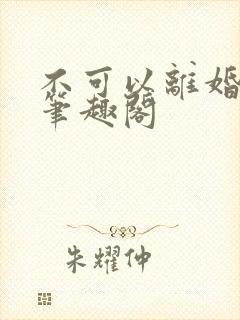 不可以離婚
筆趣閣
朱耀仲